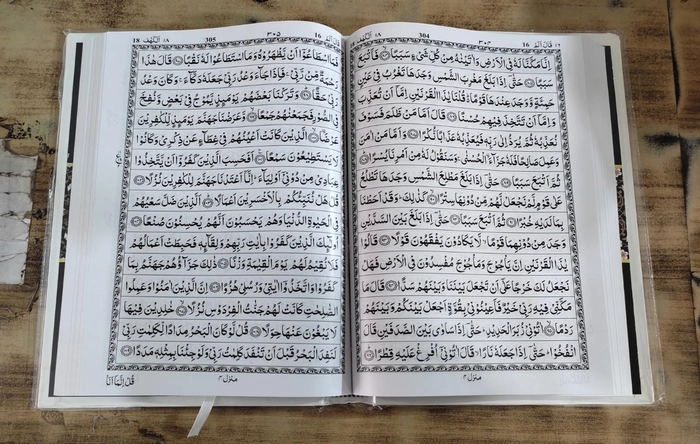 قَالَ اَلَمْ ١٦
304
٣٠٣
اَلْكَهْف ١٨
اِنَّا مَكَّنَّا لَهٗ فِى الْاَرْضِ وَاٰتَيْنٰهُ مِنْ كُلِّ شَىْءٍ سَبَبًا ۙ فَاَتْبَعَ
سَبَبًا حَتّٰٓى اِذَا بَلَغَ مَغْرِبَ الشَّمْسِ وَجَدَهَا تَغْرُبُ فِىْ عَيْنٍ
حَمِئَةٍ وَّوَجَدَ عِنْدَهَا قَوْمًا ؕ قُلْنَا يٰذَا الْقَرْنَيْنِ اِمَّاۤ اَنْ تُعَذِّبَ
وَاِمَّاۤ اَنْ تَتَّخِذَ فِيْهِمْ حُسْنًا قَالَ اَمَّا مَنْ ظَلَمَ فَسَوْفَ
نُعَذِّبُهٗ ثُمَّ يُرَدُّ اِلٰى رَبِّهٖ فَيُعَذِّبُهٗ عَذَابًا نُّكْرًا وَاَمَّا مَنْ اٰمَنَ
وَعَمِلَ صَالِحًا فَلَهٗ جَزَآءَ اۨلْحُسْنٰى ۚ وَسَنَقُوْلُ لَهٗ مِنْ اَمْرِنَا يُسْرًا
ثُمَّ اَتْبَعَ سَبَبًا حَتّٰٓى اِذَا بَلَغَ مَطْلِعَ الشَّمْسِ وَجَدَهَا تَطْلُعُ
عَلٰى قَوْمٍ لَّمْ نَجْعَلْ لَّهُمْ مِّنْ دُوْنِهَا سِتْرًا كَذٰلِكَ ؕ وَقَدْ اَحَطْنَا
بِمَا لَدَيْهِ خُبْرًا ثُمَّ اَتْبَعَ سَبَبًا حَتّٰٓى اِذَا بَلَغَ بَيْنَ السَّدَّيْنِ
وَجَدَ مِنْ دُوْنِهِمَا قَوْمًا ۙ لَّا يَكَادُوْنَ يَفْقَهُوْنَ قَوْلًا قَالُوْا
يٰذَا الْقَرْنَيْنِ اِنَّ يَاْجُوْجَ وَمَاْجُوْجَ مُفْسِدُوْنَ فِى الْاَرْضِ فَهَلْ
نَجْعَلُ لَكَ خَرْجًا عَلٰٓى اَنْ تَجْعَلَ بَيْنَنَا وَبَيْنَهُمْ سَدًّا قَالَ مَا
مَكَّنِّىْ فِيْهِ رَبِّىْ خَيْرٌ فَاَعِيْنُوْنِىْ بِقُوَّةٍ اَجْعَلْ بَيْنَكُمْ وَبَيْنَهُمْ
رَدْمًا اٰتُوْنِىْ زُبَرَ الْحَدِيْدِ ؕ حَتّٰٓى اِذَا سَاوٰى بَيْنَ الصَّدَفَيْنِ قَالَ
انْفُخُوْا ؕ حَتّٰٓى اِذَا جَعَلَهٗ نَارًا ۙ قَالَ اٰتُوْنِىْۤ اُفْرِغْ عَلَيْهِ قِطْرًا
منزل ٤
16
305
٣٠٥
اَلْكَهْف ١٨
18
فَمَا اسْطَاعُوْۤا اَنْ يَّظْهَرُوْهُ وَمَا اسْتَطَاعُوْا لَهٗ نَقْبًا قَالَ هٰذَا
رَحْمَةٌ مِّنْ رَّبِّىْ ۚ فَاِذَا جَآءَ وَعْدُ رَبِّىْ جَعَلَهٗ دَكَّآءَ ۚ وَكَانَ وَعْدُ
رَبِّىْ حَقًّا وَتَرَكْنَا بَعْضَهُمْ يَوْمَئِذٍ يَّمُوْجُ فِىْ بَعْضٍ وَّنُفِخَ
فِى الصُّوْرِ فَجَمَعْنٰهُمْ جَمْعًا وَّعَرَضْنَا جَهَنَّمَ يَوْمَئِذٍ لِّلْكٰفِرِيْنَ
عَرْضًا الَّذِيْنَ كَانَتْ اَعْيُنُهُمْ فِىْ غِطَآءٍ عَنْ ذِكْرِىْ وَكَانُوْا
لَا يَسْتَطِيْعُوْنَ سَمْعًا اَفَحَسِبَ الَّذِيْنَ كَفَرُوْۤا اَنْ يَّتَّخِذُوْا
عِبَادِىْ مِنْ دُوْنِىْۤ اَوْلِيَآءَ ؕ اِنَّاۤ اَعْتَدْنَا جَهَنَّمَ لِلْكٰفِرِيْنَ نُزُلًا
قُلْ هَلْ نُنَبِّئُكُمْ بِالْاَخْسَرِيْنَ اَعْمَالًا اَلَّذِيْنَ ضَلَّ سَعْيُهُمْ
فِى الْحَيٰوةِ الدُّنْيَا وَهُمْ يَحْسَبُوْنَ اَنَّهُمْ يُحْسِنُوْنَ صُنْعًا
اُولٰٓئِكَ الَّذِيْنَ كَفَرُوْا بِاٰيٰتِ رَبِّهِمْ وَلِقَآئِهٖ فَحَبِطَتْ اَعْمَالُهُمْ
فَلَا نُقِيْمُ لَهُمْ يَوْمَ الْقِيٰمَةِ وَزْنًا ذٰلِكَ جَزَآؤُهُمْ جَهَنَّمُ بِمَا
كَفَرُوْا وَاتَّخَذُوْۤا اٰيٰتِىْ وَرُسُلِىْ هُزُوًا اِنَّ الَّذِيْنَ اٰمَنُوْا وَعَمِلُوا
الصّٰلِحٰتِ كَانَتْ لَهُمْ جَنّٰتُ الْفِرْدَوْسِ نُزُلًا خٰلِدِيْنَ فِيْهَا
لَا يَبْغُوْنَ عَنْهَا حِوَلًا قُلْ لَّوْ كَانَ الْبَحْرُ مِدَادًا لِّكَلِمٰتِ رَبِّىْ
لَنَفِدَ الْبَحْرُ قَبْلَ اَنْ تَنْفَدَ كَلِمٰتُ رَبِّىْ وَلَوْ جِئْنَا بِمِثْلِهٖ مَدَدًا
منزل ٤
قُلْ اِنَّمَاۤ اَنَا